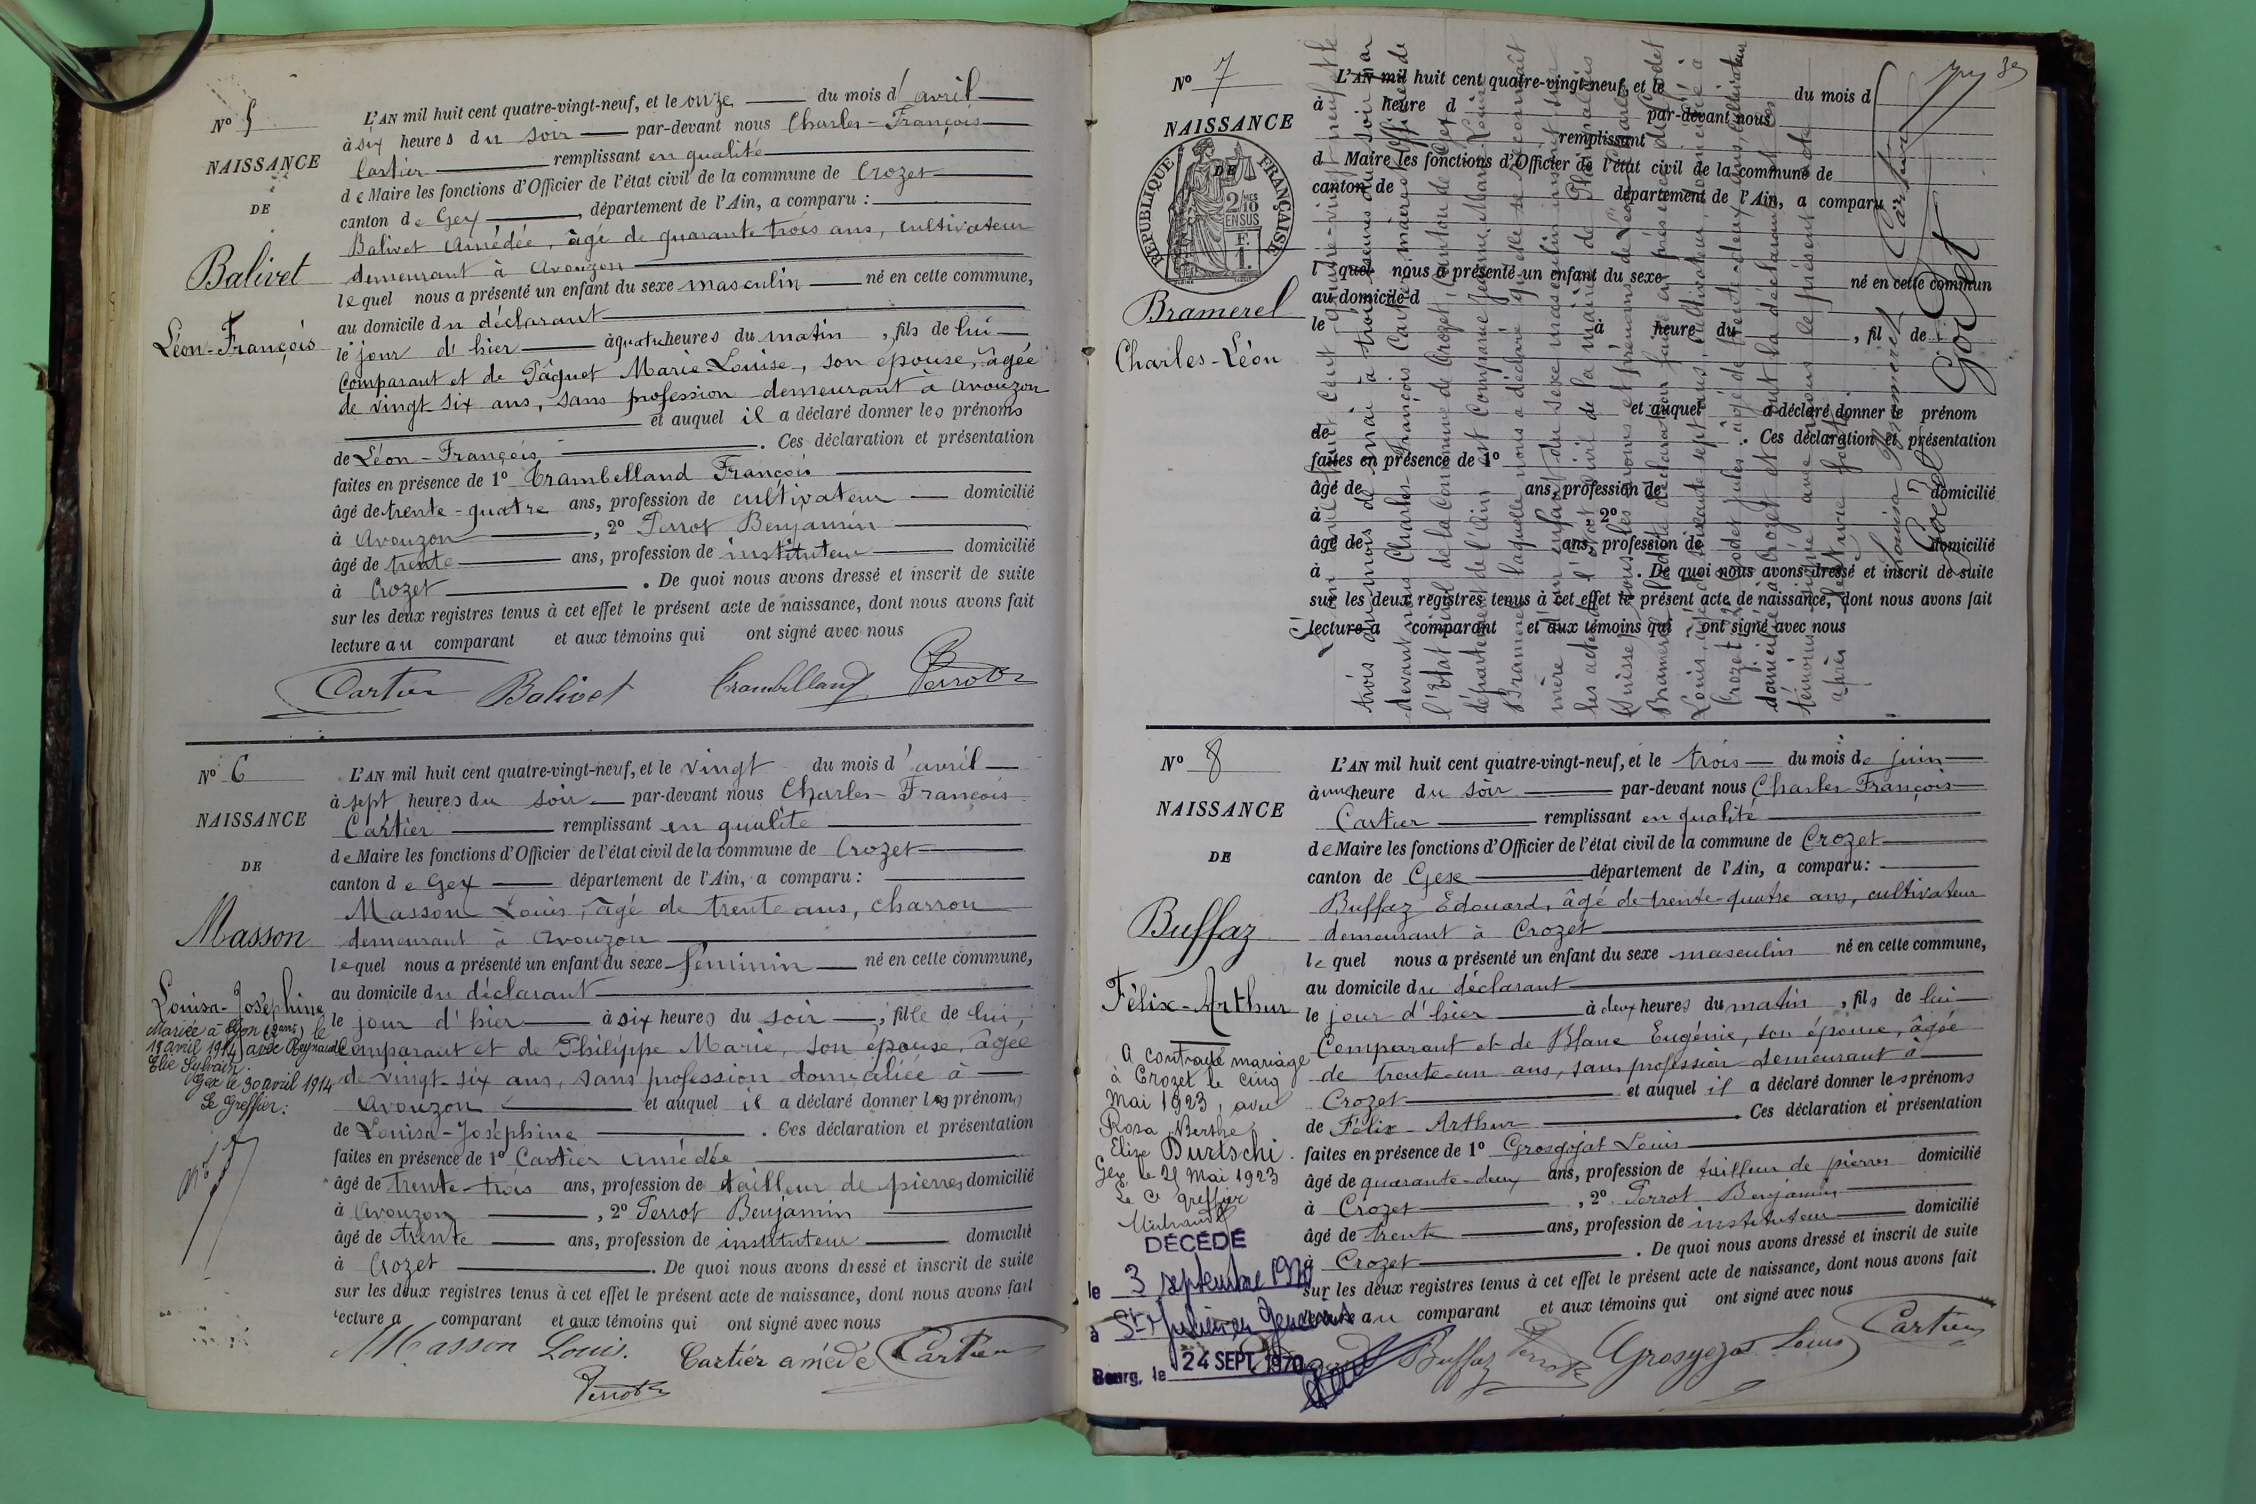 N° 5
NAISSANCE
DE
Balivet
Léon-François
L'AN mil huit cent quatre-vingt-neuf, et le onze du mois d'avril
à six heures du soir par-devant nous Charles-François
Cartier remplissant en qualité
de Maire les fonctions d'Officier de l'état civil de la commune de Crozet
canton de Gex, département de l'Ain, a comparu :
Balivet Amédée, âgé de quarante trois ans, cultivateur
demeurant à Avouzon
lequel nous a présenté un enfant du sexe masculin né en cette commune,
au domicile du déclarant
le jour d'hier à quatre heures du matin, fils de lui
comparant et de Pâquet Marie-Louise, son épouse, âgée
de vingt-six ans, sans profession demeurant à Avouzon
et auquel il a déclaré donner les prénoms
de Léon-François. Ces déclaration et présentation
faites en présence de 1° Trambelland François
âgé de trente-quatre ans, profession de cultivateur domicilié
à Avouzon, 2° Perrot Benjamin
âgé de trente ans, profession de instituteur domicilié
à Crozet. De quoi nous avons dressé et inscrit de suite
sur les deux registres tenus à cet effet le présent acte de naissance, dont nous avons fait
lecture au comparant et aux témoins qui ont signé avec nous
Cartier Balivet Trambelland Perrot
N° 6
NAISSANCE
DE
Masson
Louisa-Joséphine
Mariée à Lyon (2 arr) le
18 avril 1914 avec Reynaud
Elie Sylvain.
Gex le 30 avril 1914
Le Greffier:
L'AN mil huit cent quatre-vingt-neuf, et le vingt du mois d'avril
à sept heures du soir par-devant nous Charles-François
Cartier remplissant en qualité
de Maire les fonctions d'Officier de l'état civil de la commune de Crozet
canton de Gex département de l'Ain, a comparu :
Masson Louis, âgé de trente ans, charron
demeurant à Avouzon
lequel nous a présenté un enfant du sexe féminin né en cette commune,
au domicile du déclarant
le jour d'hier à six heures du soir, fille de lui,
comparant et de Philippe Marie, son épouse, âgée
de vingt-six ans, sans profession domicaliée à
Avouzon et auquel il a déclaré donner les prénoms
de Louisa-Joséphine. Ces déclaration et présentation
faites en présence de 1° Cartier Amédée
âgé de trente-trois ans, profession de tailleur de pierres domicilié
à Avouzon, 2° Perrot Benjamin
âgé de trente ans, profession de instituteur domicilié
à Crozet. De quoi nous avons dressé et inscrit de suite
sur les deux registres tenus à cet effet le présent acte de naissance, dont nous avons fait
lecture a comparant et aux témoins qui ont signé avec nous
Masson Louis. Cartier amédé Cartier
Perrot
39
N° 7
NAISSANCE
DE
RÉPUBLIQUE FRANÇAISE
2/10
EN SUS
F.
1
Bramerel
Charles-Léon
L'AN mil huit cent quatre-vingt-neuf, et le du mois d
à heure d par-devant nous
remplissant
d Maire les fonctions d'Officier de l'état civil de la commune de
canton de département de l'Ain, a comparu
l quel nous a présenté un enfant du sexe né en cette commun
au domicile d
le à heure du, fil de
et auquel a déclaré donner le prénom
de. Ces déclaration et présentation
faites en présence de 1°
âgé de ans, profession de domicilié
à 2°
âgé de ans, profession de domicilié
à. De quoi nous avons dressé et inscrit de suite
sur les deux registres tenus à cet effet le présent acte de naissance, dont nous avons fait
lecture a comparant et aux témoins qui ont signé avec nous
mil huit cent quatre-vingt-neuf et le
trois du mois de mai à trois heures du soir par
devant nous Charles-François Cartier maire officier de
l'état civil de la Commune de Crozet, Canton de Gex
département de l'Ain est comparue
Bramerel laquelle nous a déclaré qu'elle se reconnaît
mère d'un enfant du sexe masculin inscrit sur
Louisa Bramerel
Cartier
Godet
N° 8
NAISSANCE
DE
Buffaz
Félix-Arthur
A contracté mariage
à Crozet le cinq
mai 1923, avec
Rosa Berthe
Elize Burtschi.
Gex le 21 Mai 1923
Le Cs greffier
DÉCÉDÉ
le 3 septembre 1970
à St Julien en Genevois
Bourg, le 24 SEPT. 1970
L'AN mil huit cent quatre-vingt-neuf, et le trois du mois de juin
à une heure du soir par-devant nous Charles François
Cartier remplissant en qualité
de Maire les fonctions d'Officier de l'état civil de la commune de Crozet
canton de Gex département de l'Ain, a comparu :
Buffaz Edouard, âgé de trente-quatre ans, cultivateur
demeurant à Crozet
lequel nous a présenté un enfant du sexe masculin né en cette commune,
au domicile du déclarant
le jour d'hier à deux heures du matin, fils de lui
Comparant et de Blanc Eugénie, son épouse, âgée
de trente-un ans, sans profession demeurant à
Crozet et auquel il a déclaré donner les prénoms
de Félix-Arthur. Ces déclaration et présentation
faites en présence de 1° Grosgojat Louis
âgé de quarante-deux ans, profession de tailleur de pierres domicilié
à Crozet, 2° Perrot Benjamin
âgé de trente ans, profession de instituteur domicilié
à Crozet. De quoi nous avons dressé et inscrit de suite
sur les deux registres tenus à cet effet le présent acte de naissance, dont nous avons fait
lecture au comparant et aux témoins qui ont signé avec nous
Buffaz Perrot Grosgojat Louis Cartier